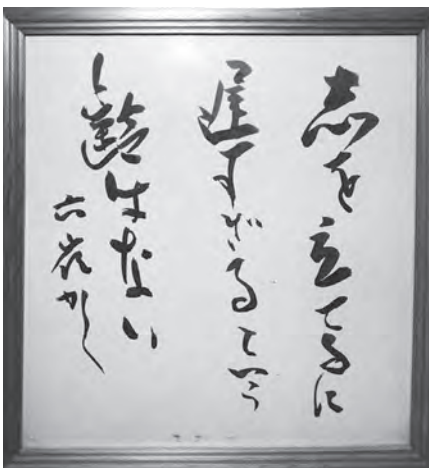 志を立てるに
遅すぎるという
齢はない
六 かく